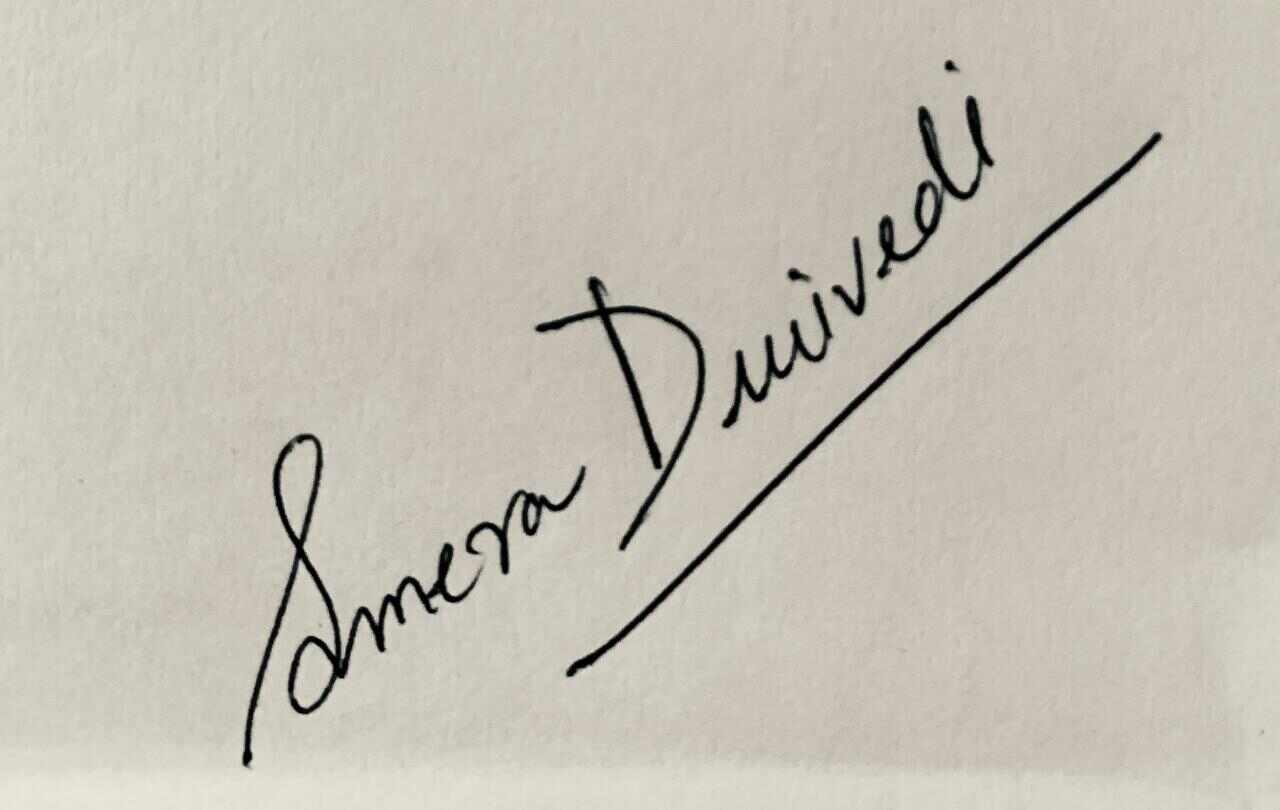 Smera Dwivedi